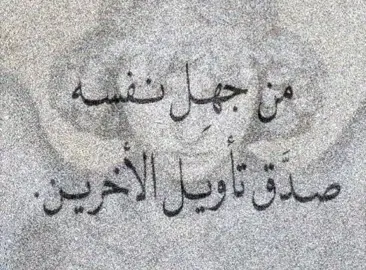 من جهِل نفسه
صدَّق تأويل الأخرين.